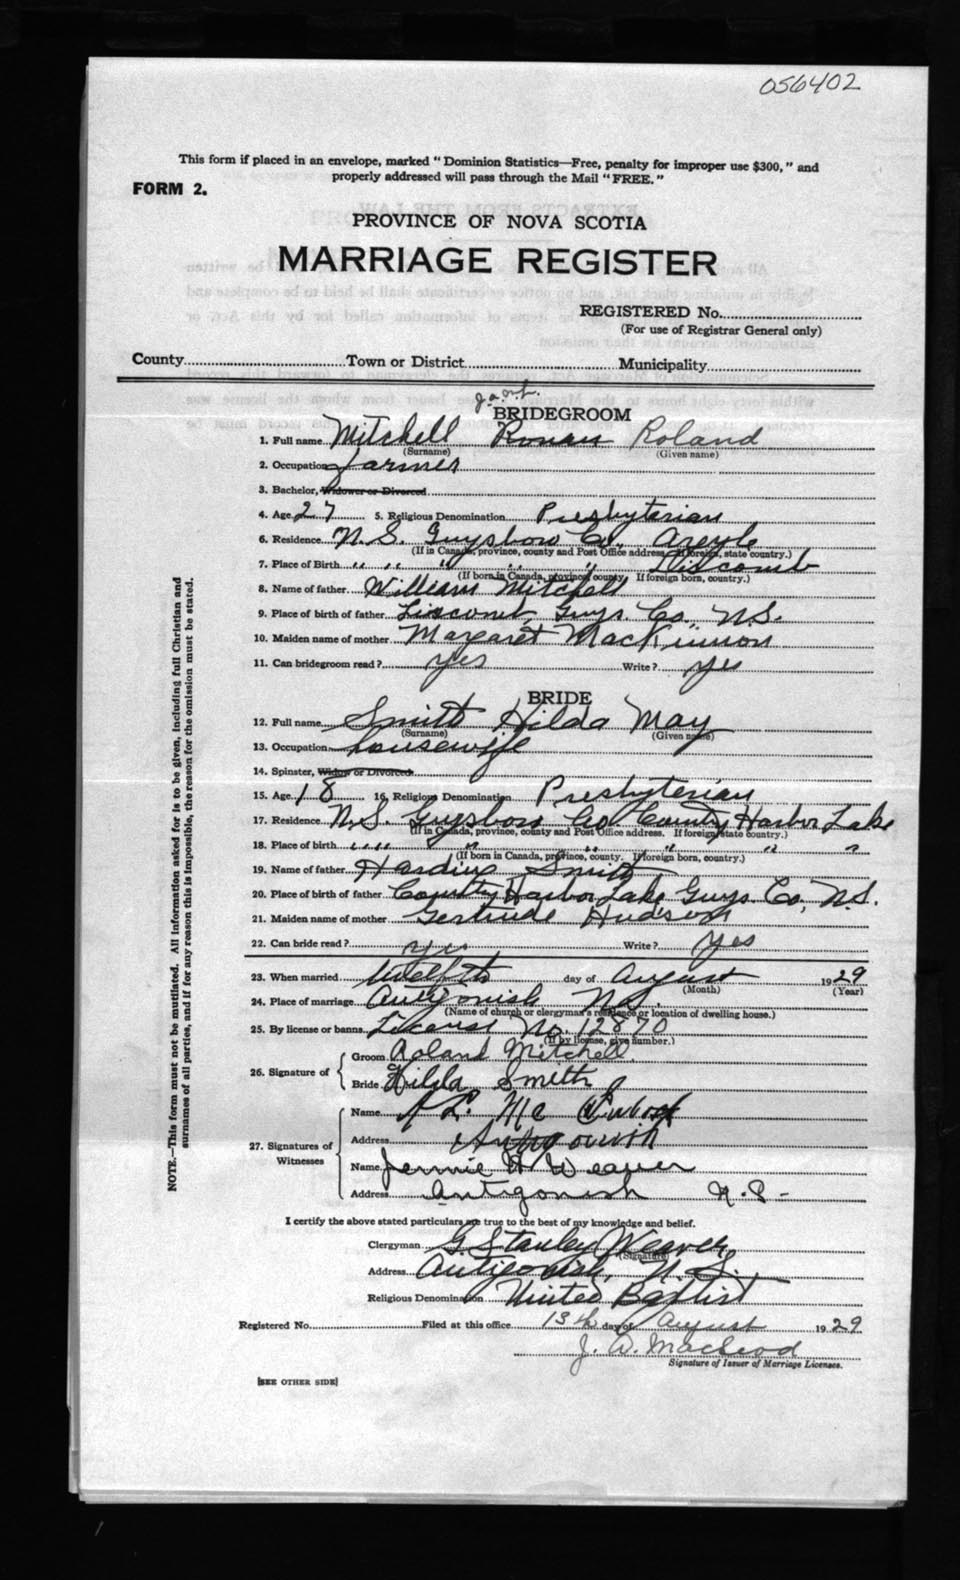 056402
This form if placed in an envelope, marked "Dominion Statistics—Free, penalty for improper use $300," and
properly addressed will pass through the Mail "FREE."
FORM 2.
PROVINCE OF NOVA SCOTIA
MARRIAGE REGISTER
REGISTERED No.
(For use of Registrar General only)
County Town or District Municipality
BRIDEGROOM
1. Full name Mitchell Ronan Roland
(Surname) (Given name)
2. Occupation farmer
3. Bachelor, Widower or Divorced
4. Age 27 5. Religious Denomination Presbyterian
6. Residence N.S. Guysboro Co. Argyle
(If in Canada, province, county and Post Office address. If foreign, state country.)
7. Place of Birth " " " " " Liscomb
(If born in Canada, province, county. If foreign born, country.)
8. Name of father William Mitchell
9. Place of birth of father Liscomb, Guys Co., N.S.
10. Maiden name of mother Margaret MacKinnon
11. Can bridegroom read? yes Write? yes
BRIDE
12. Full name Smith Hilda May
(Surname) (Given name)
13. Occupation housewife
14. Spinster, Widow or Divorced
15. Age 18 16. Religious Denomination Presbyterian
17. Residence N.S. Guysboro Co County Harbor Lake
(If in Canada, province, county and Post Office address. If foreign state country.)
18. Place of birth " " " " " " " "
(If born in Canada, province, county. If foreign born, country.)
19. Name of father Harding Smith
20. Place of birth of father County Harbor Lake Guys. Co., N.S.
21. Maiden name of mother Gertrude Hudson
22. Can bride read? yes Write? yes
23. When married twelfth day of August 1929
(Month) (Year)
24. Place of marriage Antigonish N.S.
(Name of church or clergyman's residence or location of dwelling house.)
25. By license or banns License No. 12870
(If by license, give number.)
26. Signature of Groom Roland Mitchell
Bride Hilda Smith
27. Signatures of Witnesses Name L. Mc
Address Antigonish
Name Jennie H Weaver
Address Antigonish N.S.
I certify the above stated particulars are true to the best of my knowledge and belief.
Clergyman G Stanley Weaver
(Signature)
Address Antigonish, N.S.
Religious Denomination United Baptist
Registered No. Filed at this office 13th day of August 1929
J. D. MacLeod
Signature of Issuer of Marriage Licenses.
[SEE OTHER SIDE]
NOTE.—This form must not be mutilated. All information asked for is to be given, including full Christian and
surnames of all parties, and if for any reason this is impossible, the reason for the omission must be stated.